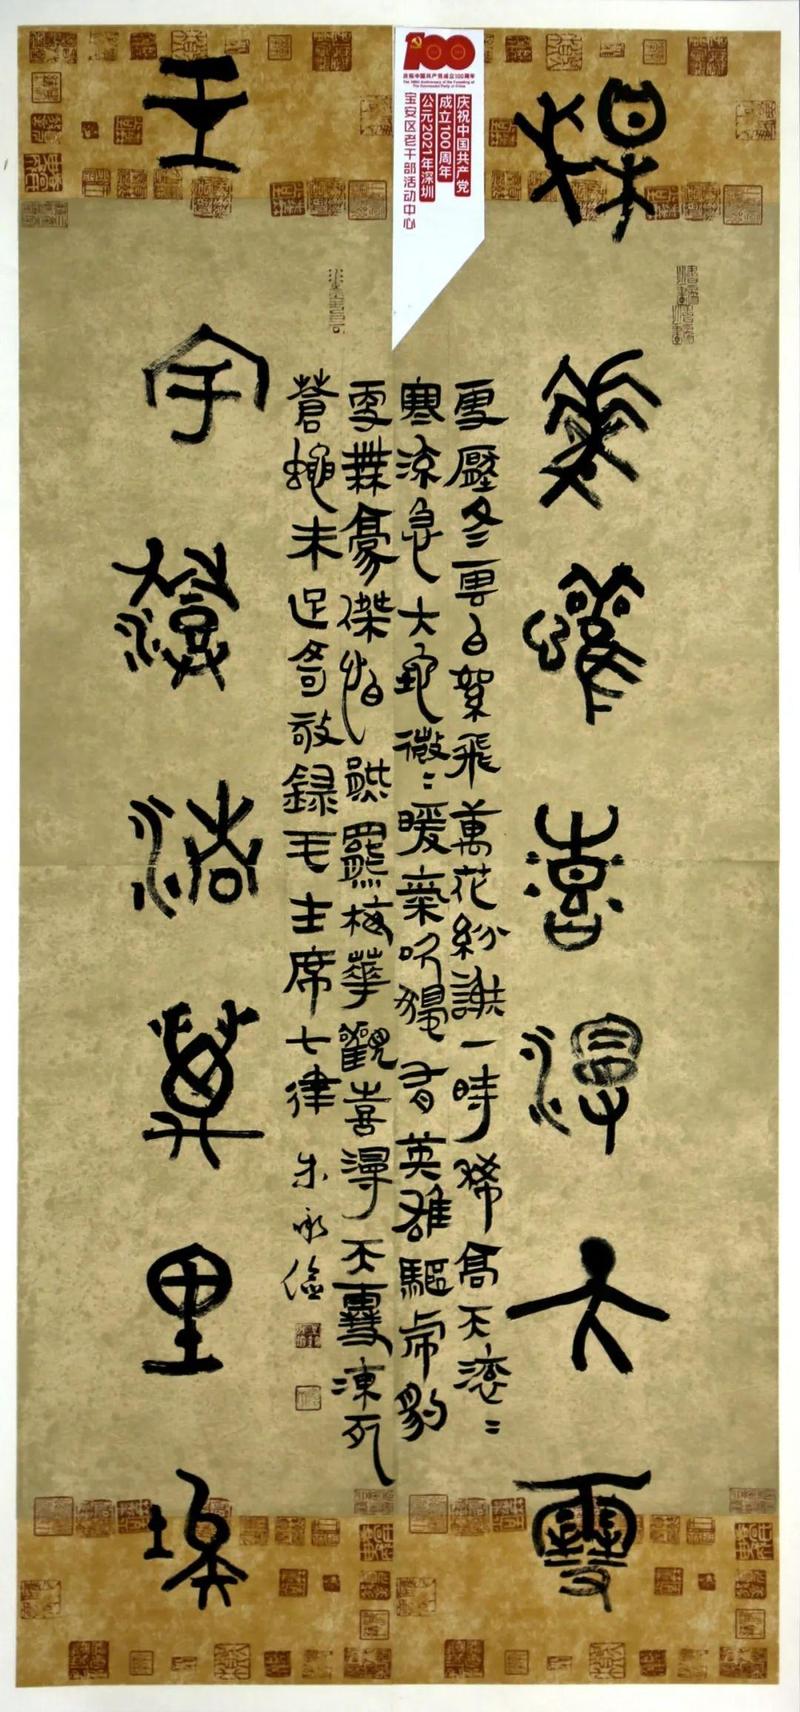 楳華懽喜漫天雪
雪壓冬雲白絮飛萬花紛謝一時稀高天滾〻
寒流急大地微〻暖氣吹獨有英雄驅虎豹
更無豪傑怕熊羆梅華歡喜漫天雪凍死
蒼蠅未足奇敬錄毛主席七律 朱永儉
玉宇澂清萬里埃
100
庆祝中国共产党成立100周年
The 100th Anniversary of the Founding of
The Communist Party of China
庆祝中国共产党
成立100周年
公元2021年深圳
宝安区老干部活动中心